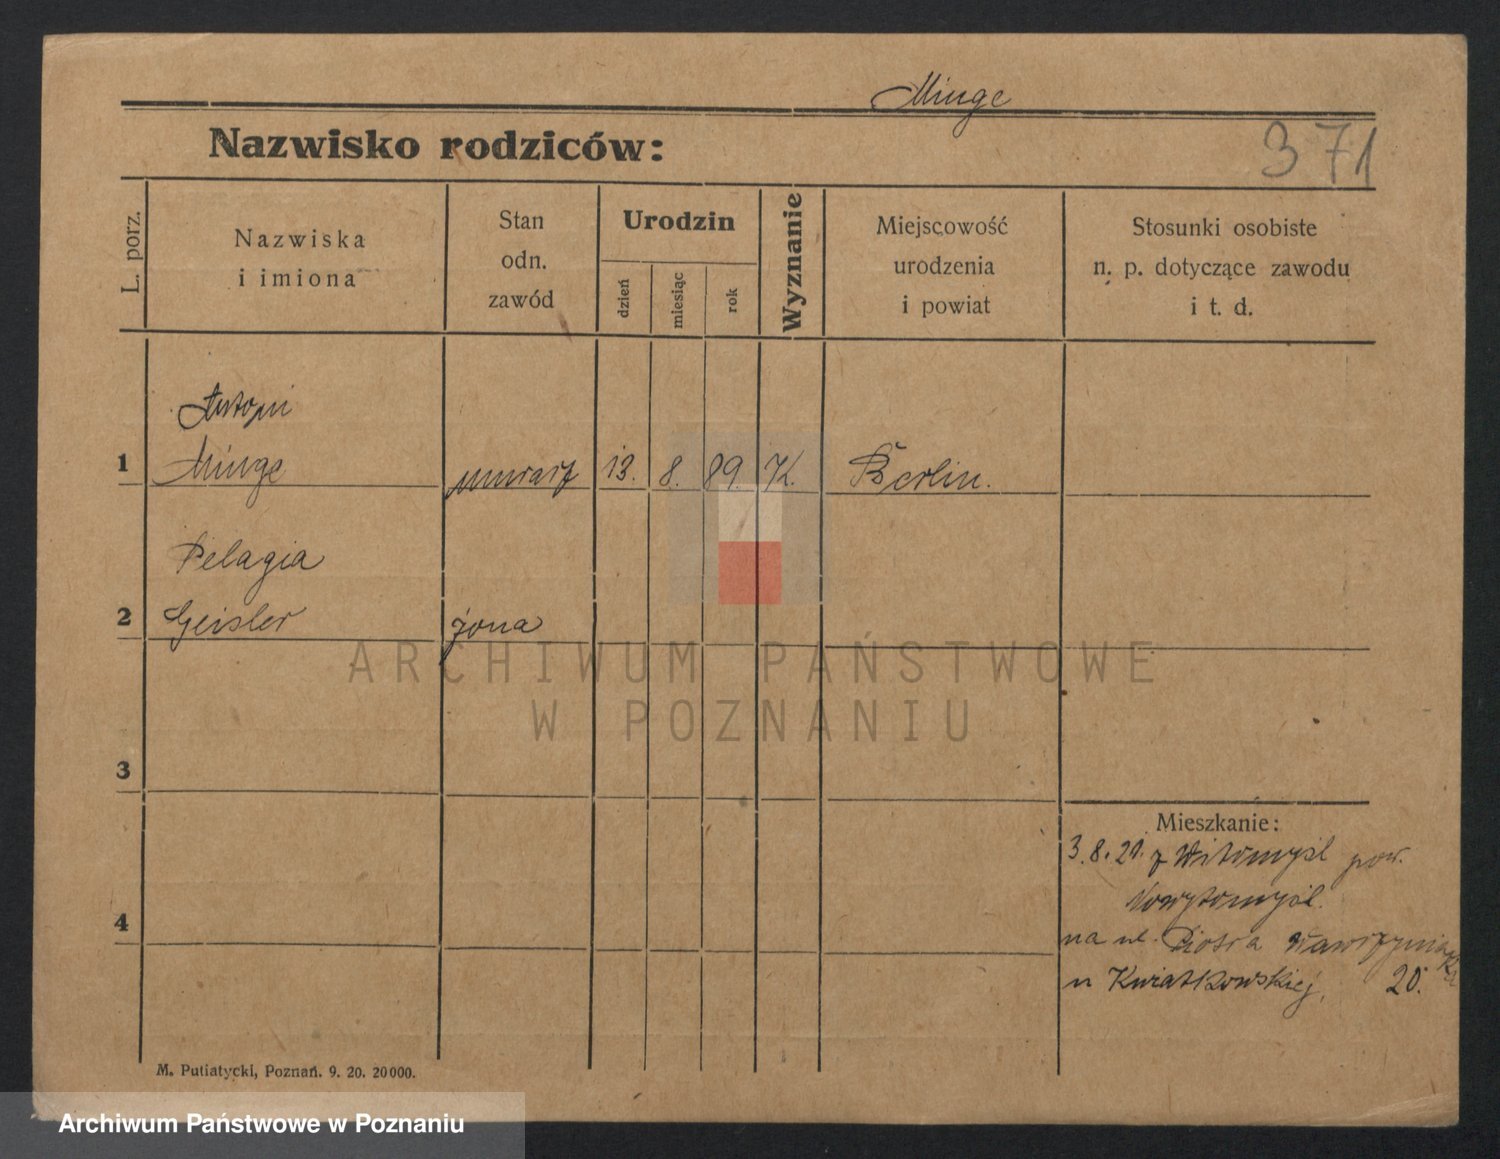 Minge
Nazwisko rodziców:
371
L. porz.
Nazwiska
i imiona
Stan
odn.
zawód
Urodzin
dzień
miesiąc
rok
Wyznanie
Miejscowość
urodzenia
i powiat
Stosunki osobiste
n. p. dotyczące zawodu
i t. d.
Antoni
1 Minge murarz 13. 8. 89. K. Berlin.
Pelagia
2 Geisler żona
ARCHIWUM PAŃSTWOWE
W POZNANIU
3
Mieszkanie:
3.8.21. z Witomyśl pow.
Nowytomyśl.
4
na ul. Piotra Wawrzyniaka
u Kwiatkowskiej, 20.
M. Putiatycki, Poznań. 9. 20. 20000.
Archiwum Państwowe w Poznaniu